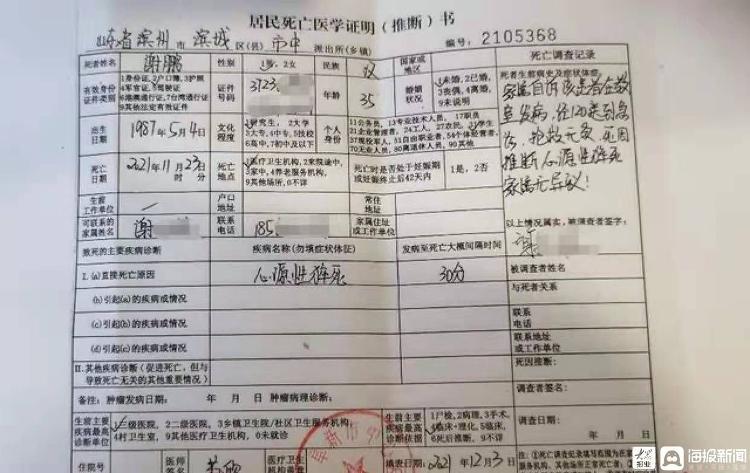 居民死亡医学证明（推断）书
山东省滨州市滨城区(县)市中派出所(乡镇)
编号：2105368
死者姓名 谢鹏 性别 1男,2女 民族 汉 国家或地区
有效身份证件类别
1身份证,2户口簿,3护照
4军官证,5驾驶证
6港澳通行证,7台湾通行证
9其他法定有效证件
证件号码 3723
年龄 35
婚姻状况
1未婚,2已婚,
3丧偶,4离婚,
9未说明
出生日期 1987年5月4日
文化程度
1研究生,2大学
3大专,4中专,5技校
6高中,7初中及以下
个人身份
11公务员,13专业技术人员,17职员
21企业管理者,24工人,27农民,31学生
70无业人员,80离退休人员,90其他
死亡日期 2021年11月23日
时 分
死亡地点
1医疗卫生机构,2来院途中,
3家中,4养老服务机构,
9其他场所,0不详
死亡时是否处于妊娠期或妊娠终止后42天内 1是,2否
生前工作单位 一
户口地址
常住地址
可联系的家属姓名 谢
联系电话 185
家属住址或工作单位
致死的主要疾病诊断 疾病名称(勿填症状体征) 发病至死亡大概间隔时间
I.(a)直接死亡原因 心源性猝死 30分
(b)引起(a)的疾病或情况
(c)引起(b)的疾病或情况
(d)引起(c)的疾病或情况
II.其他疾病诊断(促进死亡,但与
导致死亡无关的其他重要情况)
备注：肿瘤发病日期： 年 月 日 肿瘤病理诊断：
生前主要疾病最高诊断单位
级医院,2二级医院,3乡镇卫生院/社区卫生服务机构,
4村卫生室,9其他医疗卫生机构,0未就诊
生前主要疾病最高诊断依据
1尸检,2病理,3手术,
4临床+理化,5临床,
6死后推断,9不详
住院号
医师签名
医疗卫生机构盖章
填表日期 2021年12月3日
死亡调查记录
死者生前病史及症状体征：
家属自诉该患者在教
室发病，经120送到急
诊，抢救无效，死因
推断心源性猝死
家属无异议！
以上情况属实，被调查者签字：
被调查者姓名
与死者关系
联系电话
联系地址或工作单位
死因推断：
调查者签名：
调查日期： 年 月 日
注:①死亡调查记录填写范围
海报新闻